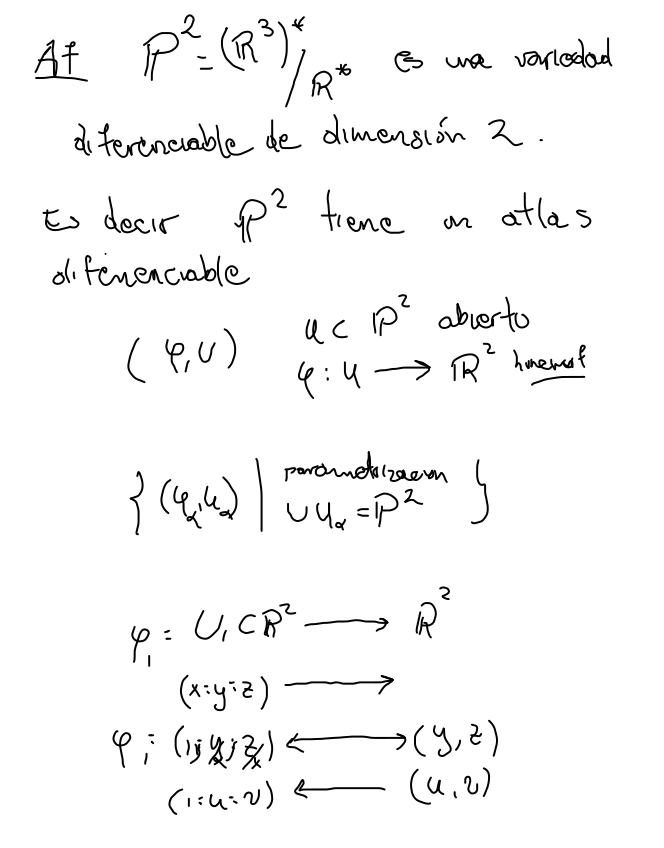 Af P² = (R³)* / R* es una variedad
diferenciable de dimensión 2.
Es decir P² tiene un atlas
diferenciable
(φ, U) U ⊂ P² abierto
φ : U ⟶ R² homeomf
{ (φα, Uα) | parametrización ∪ Uα = P² }
φ₁ : U₁ ⊂ R² ⟶ R²
(x:y:z) ⟶
φ₁ : (1:y:z) ⟷ (y, z)
(1:u:v) ⟵ (u, v)